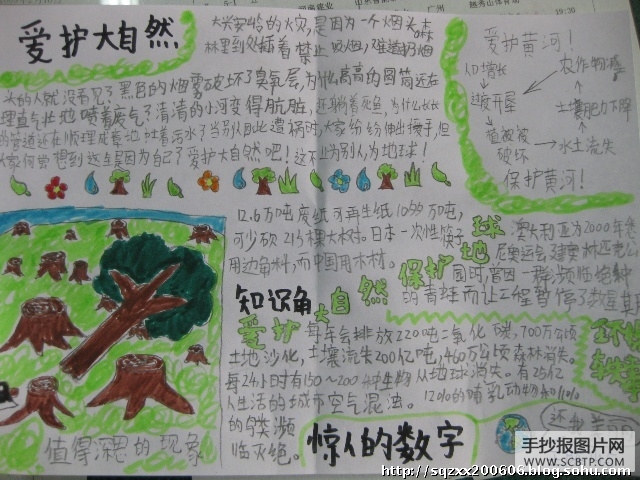 广州
越秀山体育场
19:30
爱护大自然
大兴安岭的火灾,是因为一个烟头。森
林里到处插着禁止吸烟,
黑色的烟雾破坏了臭氧层,为什么高高的
清清的小河变得肮脏,
管道还在顺理成章地吐着污水了当别人此遭祸时,大家纷纷伸出援手,但
大家何曾想到这是因为自己了爱护大自然吧!这不止为别人,为地球!
爱护黄河!
人口增长
过度开垦
植被被
破坏
水土流失
土壤肥力下降
农作物减
保护黄河!
12.6万吨废纸可再生纸10万吨,
可少砍215棵大树。日本一次性筷子
用边角料,而中国用木材。
澳大利亚为2000年悉
尼奥运会建奥林匹克公
园时,曾因一种濒临绝种
的青蛙而让工程暂停了数星期
爱护大自然
保护地球
知识角
每年会排放220吨二氧化碳,700万公顷
土地沙化,土壤流失200亿吨,460万公顷森林消失。
每24小时有150~200种生物从地球消失。有25亿
人生活的城市空气混浊。
12%的哺乳动物和11%
的鸟类濒
临灭绝。
惊人的数字
值得深思的现象
手抄报图片网
WWW.SCBTP.COM
http://sqzxx200606.blog.sohu.com